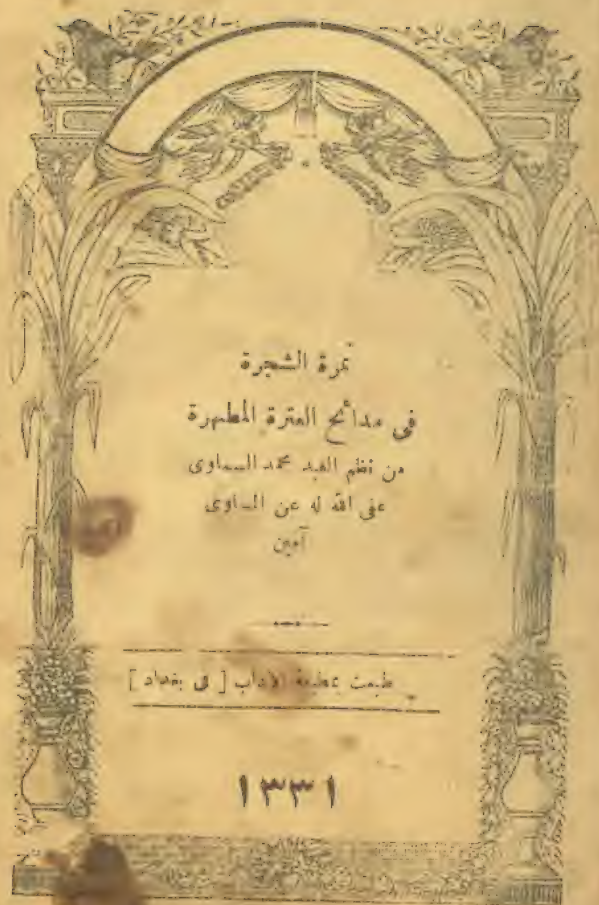 ثمرة الشجرة
فى مدائح العترة المطهرة
من نظم العبد محمد السماوى
عفى الله له عن المساوى
آمين
طبعت بمطبعة الآداب [ فى بغداد ]
١٣٣١